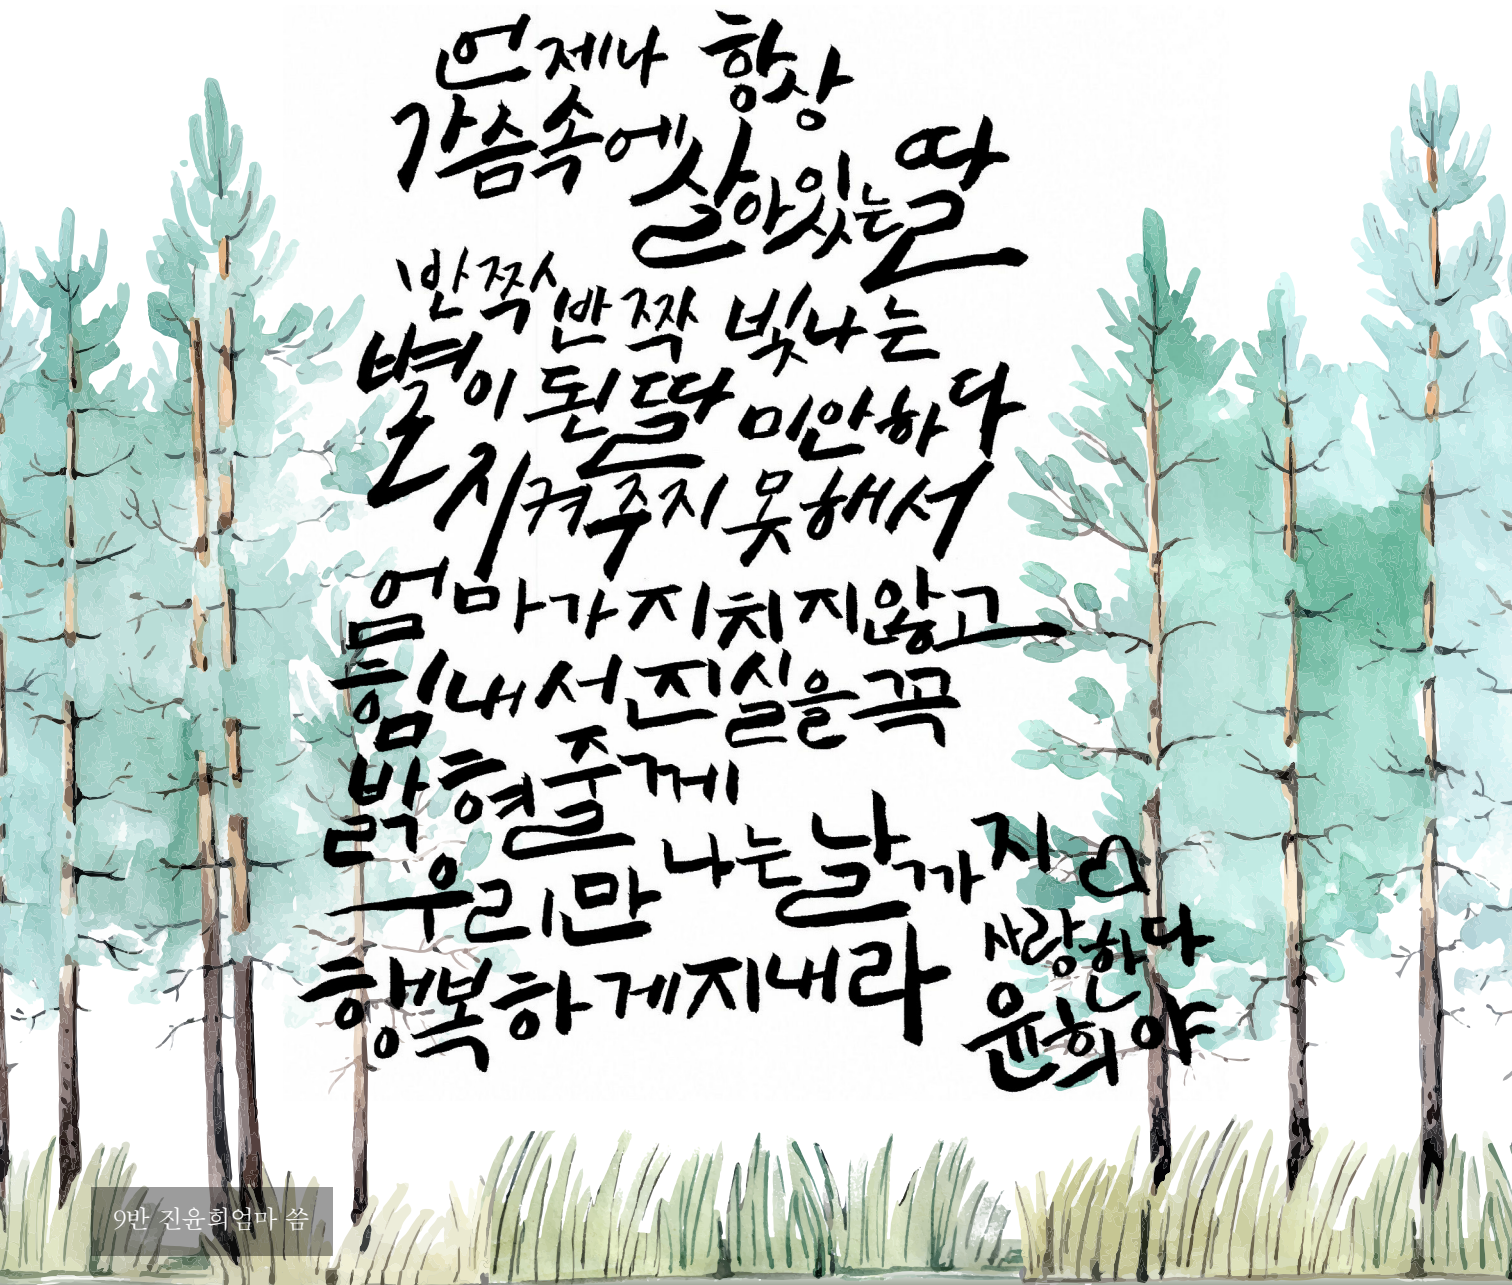 언제나 항상
가슴속에 살아있는 딸
반짝반짝 빛나는
별이 된 딸 미안하다
지켜주지 못해서
엄마가 지치지않고
힘내서 진실을 꼭
밝혀줄께
우리 만나는 날까지
행복하게 지내라
사랑한다
윤희야
9반 진윤희엄마 씀